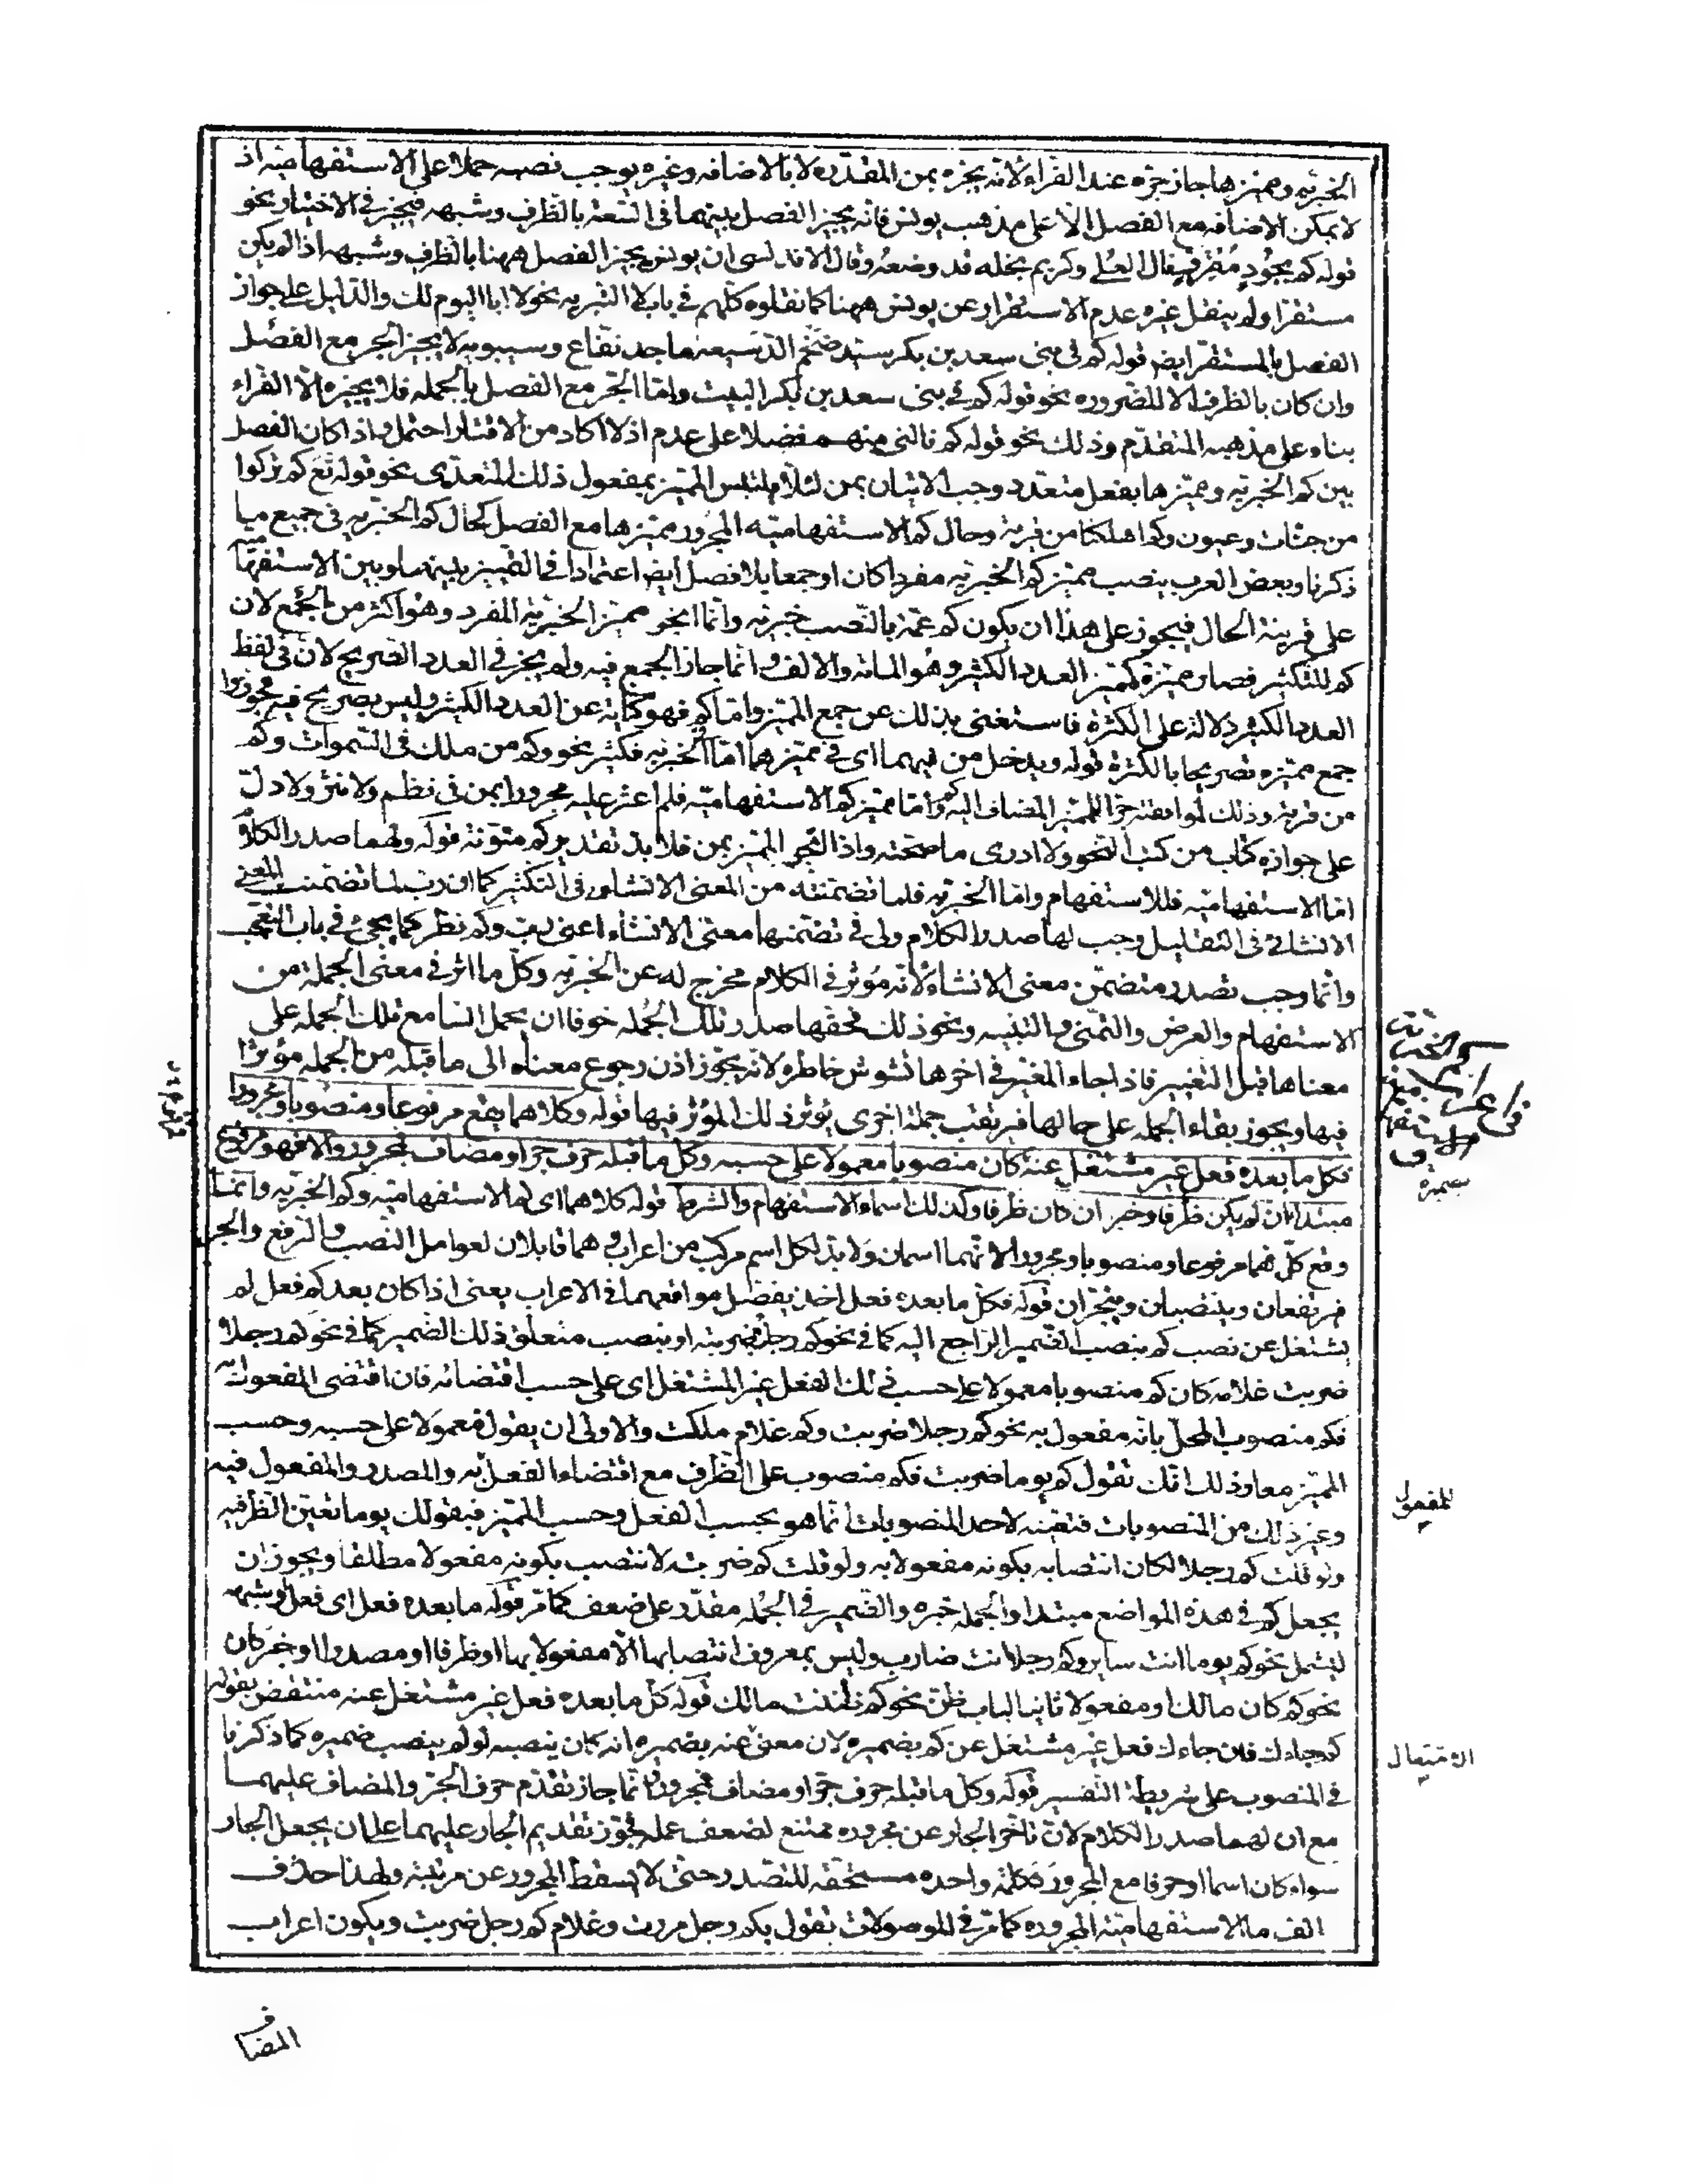 الخبريه ومميزها جاز جره عند الفراء لانه يجره بمن المقدره لا بالاضافه وغيره يوجب نصبه حملا على الاستفهاميه اذ
لا يمكن الاضافه مع الفصل الا على مذهب يونس فانه يجيز الفصل بينهما في السعة بالظرف وشبهه فيجيز في الاختيار نحو
قوله كم بجودٍ مُقْرِفٍ نال العُلى وكريم بخله قد وضعه وقال الاندلسى ان يونس يجيز الفصل ههنا بالظرف وشبهه اذا لم يكن
مستقرا ولم ينقل غيره عدم الاستقرار عن يونس ههنا كما نقلوه كلهم في باب لا التبريه نحو لا ابا اليوم لك والدليل على جواز
الفصل بالمستقر ايض قوله كم في بنى سعد بن بكر سيد ضخم الدسيعة ماجد نفاع وسيبويه لا يجيز الجر مع الفصل
وان كان بالظرف الا للضروره نحو قوله كم في بنى سعد بن بكر البيت واما الجر مع الفصل بالجمله فلا يجيزه الا الفراء
بناء على مذهبه المتقدم وذلك نحو قوله كم نالنى منهم فضلا على عدم اذ لا اكاد من الاقتار احتمل واذا كان الفصل
بين كم الخبريه ومميزها بفعل متعد وجب الاتيان بمن لئلا يلتبس المميز بمفعول ذلك المتعدى نحو قوله تع كم تركوا
من جنات وعيون وكم اهلكنا من قرية وحال كم الاستفهاميه المجرور مميزها مع الفصل كحال كم الخبريه في جميع ما
ذكرنا وبعض العرب ينصب مميز كم الخبريه مفردا كان او جمعا بلا فصل ايض اعتمادا في التمييز بينها وبين الاستفهاميه
على قرينة الحال فيجوز على هذا ان يكون كم عمة بالنصب خبريه وانما انجر مميز الخبريه المفرد وهو اكثر من الجمع لان
كم للتكثير فصار مميزه كمميز العدد الكثير وهو المائه والالف وانما جاز الجمع فيه ولم يجز في العدد الصريح لان في لفظ
العدد الكثير دلالة على الكثرة فاستغنى بذلك عن جمع المميز واما كم فهو كناية عن العدد الكثير وليس بصريح فيه فجوزوا
جمع مميزه تصريحا بالكثرة قوله ويدخل من فيهما اى في مميزهما اما الخبريه فكثير نحو وكم من ملك في السموات وكم
من قرية وذلك لموافقته جرا للمميز المضاف اليه كم واما مميز كم الاستفهاميه فلم اعثر عليه مجرورا بمن في نظم ولا نثر ولا دل
على جوازه كتاب من كتب النحو ولا ادرى ما صحته واذا انجر المميز بمن فلا بد تقدير كم منونة قوله ولهما صدر الكلام
اما الاستفهاميه فللاستفهام واما الخبريه فلما تضمنته من المعنى الانشاء في التكثير كما ان رب لما تضمنت المعنى
الانشائى في التقليل وجب لها صدر الكلام ولى في تضمنها معنى الانشاء اعنى رب وكم نظر كما يجئ في باب التعجب
وانما وجب تصدر متضمن معنى الانشاء لانه مؤثر في الكلام مخرج له عن الخبريه وكل ما اثر في معنى الجملة من
الاستفهام والعرض والتمنى والتنبيه ونحو ذلك فحقها صدر تلك الجمله خوفا ان يحمل السامع تلك الجمله على
معناها قبل التغيير فاذا جاء المغير في اخرها تشوش خاطره لانه يجوز اذن رجوع معناه الى ما قبله من الجمله مؤثرا
فيها ويجوز بقاء الجمله على حالها فيرتقب جملة اخرى يؤثر ذلك المؤثر فيها قوله وكلاهما يقع مرفوعا ومنصوبا ومجرورا
فكل ما بعده فعل غير مشتغل عنه كان منصوبا معمولا على حسبه وكل ما قبله حرف جر او مضاف فمجرور والا فهو مرفوع
مبتدا ان لم يكن ظرفا وخبر ان كان ظرفا وكذلك اسماء الاستفهام والشرط قوله كلاهما اى كم الاستفهاميه وكم الخبريه وانما
وقع كل منهما مرفوعا ومنصوبا ومجرورا لانهما اسمان ولا بد لكل اسم مركب من اعراب وهما قابلان لعوامل النصب والرفع والجر
فيرتفعان وينتصبان وينجران قوله فكل ما بعده فعل اخذ يفصل مواقعهما في الاعراب يعنى اذا كان بعد كم فعل لم
يشتغل عن نصب كم بنصب الضمير الراجع اليه كما في نحو كم رجلا ضربته او بنصب متعلق ذلك الضمير كما في نحو كم رجلا
ضربت غلامه كان كم منصوبا معمولا على حسب ذلك الفعل غير المشتغل اى على حسب اقتضائه فان اقتضى المفعول به
فكم منصوب المحل بانه مفعول به نحو كم رجلا ضربت وكم غلام ملكت والاولى ان يقول معمولا على حسبه وحسب
المميز معا وذلك انك تقول كم يوما ضربت فكم منصوب على الظرف مع اقتضاء الفعل به والمصدر والمفعول فيه
وغير ذلك من المنصوبات فتعينه لاحد المنصوبات انما هو بحسب الفعل وحسب المميز فبقولك يوما تعين الظرفيه
ولو قلت كم رجلا لكان انتصابه بكونه مفعولا به ولو قلت كم ضربة لانتصب بكونه مفعولا مطلقا ويجوز ان
يجعل كم في هذه المواضع مبتدا والجمله خبره والضمير في الجمله مقدر على ضعف كما مر قوله ما بعده فعل اى فعل او شبهه
ليشمل نحو كم يوما انت سائر وكم رجلا انت ضارب وليس بمعروف انتصابها الا مفعولا بها او ظرفا او مصدرا او خبر كان
نحو كم كان مالك او مفعولا ثانيا لباب ظن نحو كم ظننت مالك قوله كل ما بعده فعل غير مشتغل عنه منتقض بقوله
كم جاءك فان جاءك فعل غير مشتغل عن كم بضميره لان معنى عنه بضميره انه كان ينصبه لو لم ينصب ضميره كما ذكرنا
في المنصوب على شريطة التفسير قوله وكل ما قبله حرف جر او مضاف فمجرور انما جاز تقدم حرف الجر والمضاف عليهما
مع ان لهما صدر الكلام لان تاخر الجار عن مجروره ممتنع لضعف عمله فجوز تقديم الجار عليهما على ان يجعل الجار
سواء كان اسما او حرفا مع المجرور ككلمة واحده مستحقه للتصدر حتى لا يسقط المجرور عن مرتبته ولهذا حذف
الف ما الاستفهاميه المجروره كما مر في الموصولات تقول بكم رجل مررت وغلام كم رجل ضربت ويكون اعراب
المفعول
الاشتغال
المضاف